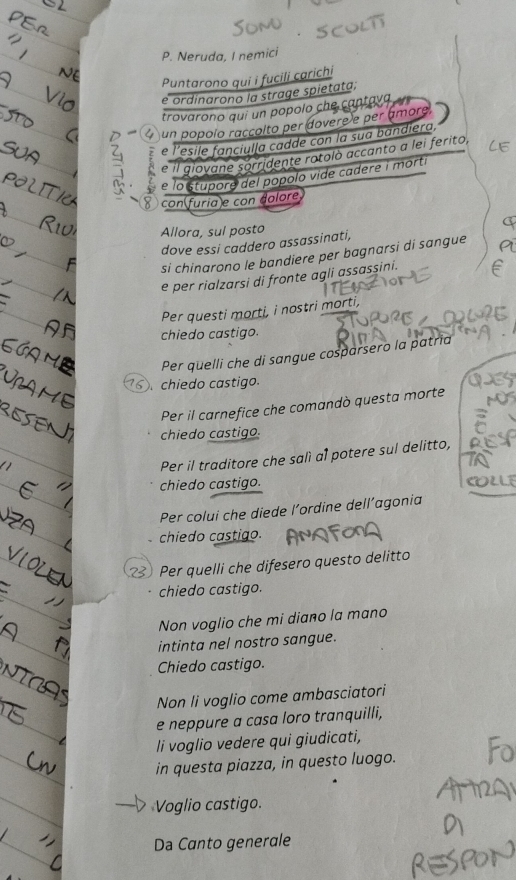 SONO SCOLTI
P. Neruda, I nemici
Puntarono qui i fucili carichi
e ordinarono la strage spietata;
trovarono qui un popolo che cantava,
4 un popolo raccolto per dovere e per amore,
e l'esile fanciulla cadde con la sua bandiera,
e il giovane sorridente rotolò accanto a lei ferito,
e lo stupore del popolo vide cadere i morti
8 con furia e con dolore.
ANTITESI
Allora, sul posto
dove essi caddero assassinati,
si chinarono le bandiere per bagnarsi di sangue
e per rialzarsi di fronte agli assassini.
ITERAZIONE
Per questi morti, i nostri morti,
chiedo castigo.
STUPORE / DOLORE
RIMA INTERNA
Per quelli che di sangue cosparsero la patria
16 chiedo castigo.
Per il carnefice che comandò questa morte
chiedo castigo.
Per il traditore che salì al potere sul delitto,
chiedo castigo.
Per colui che diede l'ordine dell'agonia
chiedo castigo. ANAFORA
23 Per quelli che difesero questo delitto
chiedo castigo.
Non voglio che mi diano la mano
intinta nel nostro sangue.
Chiedo castigo.
Non li voglio come ambasciatori
e neppure a casa loro tranquilli,
li voglio vedere qui giudicati,
in questa piazza, in questo luogo.
Voglio castigo.
Da Canto generale
PER
NE
A VIO
SUA
POLITIC
A RIV
IN
EGAME
URAME
RESENT
" E "
NZA
VIOLEN
A
ONTRAS
TE
UN
LE
E
QUES
RESP
TÀ
COLLE
FO
ATTRA
DI
RESPON